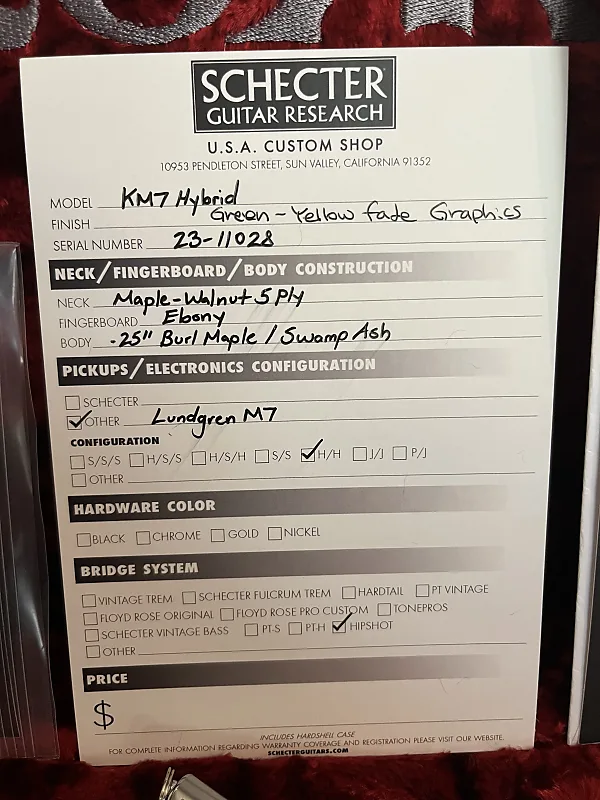 SCHECTER
GUITAR RESEARCH
U.S.A. CUSTOM SHOP
10953 PENDLETON STREET, SUN VALLEY, CALIFORNIA 91352
MODEL KM7 Hybrid
FINISH Green-Yellow fade Graphics
SERIAL NUMBER 23-11028
NECK/FINGERBOARD/BODY CONSTRUCTION
NECK Maple-Walnut 5 Ply
FINGERBOARD Ebony
BODY .25" Burl Maple / Swamp Ash
PICKUPS/ELECTRONICS CONFIGURATION
SCHECTER
OTHER Lundgren M7
CONFIGURATION
S/S/S H/S/S H/S/H S/S H/H J/J P/J
OTHER
HARDWARE COLOR
BLACK CHROME GOLD NICKEL
BRIDGE SYSTEM
VINTAGE TREM SCHECTER FULCRUM TREM HARDTAIL PT VINTAGE
FLOYD ROSE ORIGINAL FLOYD ROSE PRO CUSTOM TONEPROS
SCHECTER VINTAGE BASS PT-S PT-H HIPSHOT
OTHER
PRICE
$
INCLUDES HARDSHELL CASE
FOR COMPLETE INFORMATION REGARDING WARRANTY COVERAGE AND REGISTRATION PLEASE VISIT OUR WEBSITE.
SCHECTERGUITARS.COM